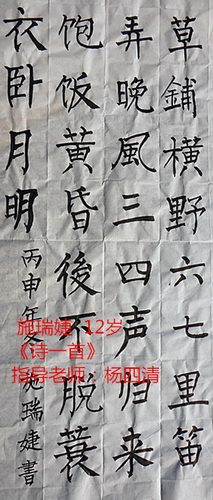 草鋪横野六七里笛
弄晚風三四声归来
饱饭黄昏後不脱蓑
衣卧月明
丙申年冬施瑞婕書
施瑞婕 12岁
《诗一首》
指导老师：杨四清